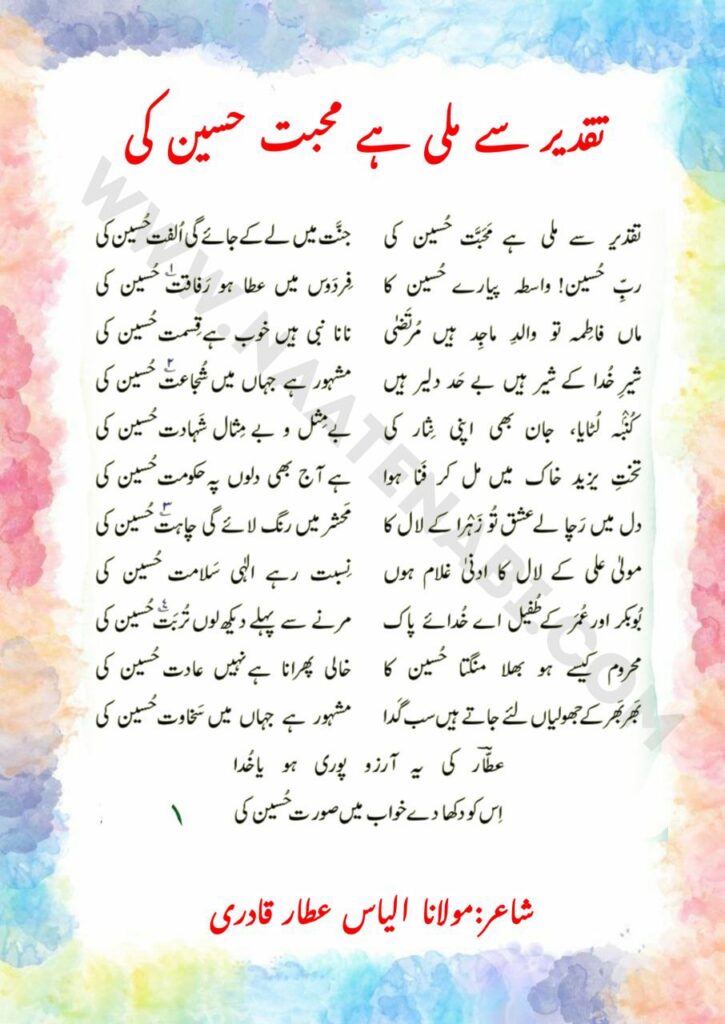 تقدیر سے ملی ہے محبت حسین کی
تقدیر سے ملی ہے مَحَبَّت حُسین کی جنَّت میں لے کے جائے گی اُلفت حُسین کی
ربِّ حُسین! واسطہ پیارے حُسین کا فِردَوس میں عطا ہو رَفاقت۱ حُسین کی
ماں فاطِمہ تو والدِ ماجِد ہیں مُرتَضٰی نانا نبی ہیں خوب ہے قِسمت حُسین کی
شیرِ خُدا کے شیر ہیں بے حَد دلیر ہیں مشہور ہے جہاں میں شُجاعت۲ حُسین کی
کُنْبہ لُٹایا، جان بھی اپنی نِثار کی بے مِثل و بے مِثال شَہادت حُسین کی
تختِ یزید خاک میں مل کر فَنا ہوا ہے آج بھی دلوں پہ حکومت حُسین کی
دل میں رَچا لے عشق تُو زَہرا کے لال کا مَحشر میں رنگ لائے گی چاہت۳ حُسین کی
مولیٰ علی کے لال کا ادنیٰ غلام ہوں نِسبت رہے الٰہی سَلامت حُسین کی
بُوبکر اور عُمَر کے طُفیل اے خُدائے پاک مرنے سے پہلے دیکھ لوں تُربَت۴ حُسین کی
محروم کیسے ہو بھلا منگتا حُسین کا خالی پھرانا ہے نہیں عادت حُسین کی
بَھر بَھر کے جھولیاں لئے جاتے ہیں سب گَدا مشہور ہے جہاں میں سَخاوت حُسین کی
عطّاؔر کی یہ آرزو پوری ہو یاخُدا
اِس کو دکھا دے خواب میں صورت حُسین کی
۱
شاعر:مولانا الیاس عطار قادری
WWW.NAATENABI.COM